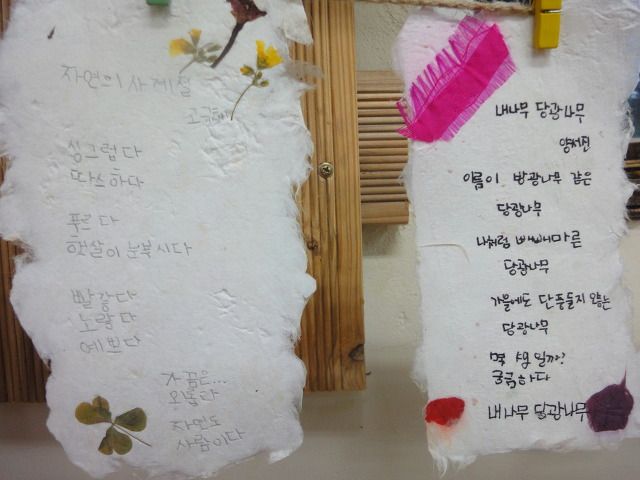 자연의 사계절
싱그럽다
따스하다
푸르다
햇살이 눈부시다
빨갛다
노랗다
예쁘다
가끔은...
외롭다
자연도
사람이다
내나무 당광나무
양서진
이름이 방광나무 같은
당광나무
나처럼 빼빼마른
당광나무
가을에도 단풍들지 않는
당광나무
몇 살일까?
궁금하다
내나무 당광나무